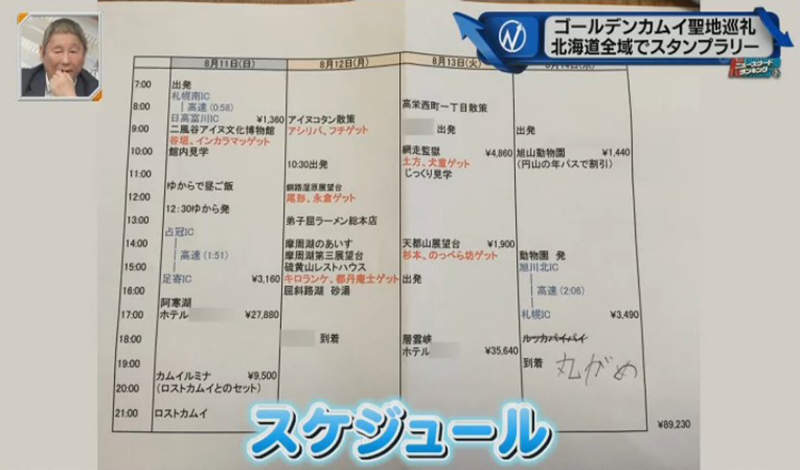 ゴールデンカムイ聖地巡礼
北海道全域でスタンプラリー
N
ランキング
8月11日(日) 8月12日(月) 8月13日(火)
7:00 出発
札幌南IC
8:00 高速 (0:58) 高栄西町一丁目散策
日高富川IC ¥1,360 アイヌコタン散策
9:00 二風谷アイヌ文化博物館 アシリパ、フチゲット 出発 出発
谷垣、インカラマッゲット
10:00 館内見学 網走監獄 ¥4,860 旭山動物園 ¥1,440
10:30出発 土方、犬童ゲット (円山の年パスで割引)
11:00 じっくり見学
ゆからで昼ご飯 釧路湿原展望台
12:00 尾形、永倉ゲット
12:30ゆから発
13:00 弟子屈ラーメン総本店
占冠IC
14:00 摩周湖のあいす 天都山展望台 ¥1,900
高速 (1:51) 摩周湖第三展望台 杉本、のっぺら坊ゲット 動物園 発
15:00 硫黄山レストハウス 旭川北IC
足寄IC ¥3,160 キロランケ、都丹庵士ゲット 出発
16:00 屈斜路湖 砂湯 高速 (2:06)
阿寒湖
17:00 ホテル ¥27,880 札幌IC ¥3,490
18:00 到着 層雲峡 ルッカパイパイ
ホテル ¥35,640
19:00 到着 丸がめ
カムイルミナ ¥9,500
20:00 (ロストカムイとのセット)
21:00 ロストカムイ
¥89,230
スケジュール